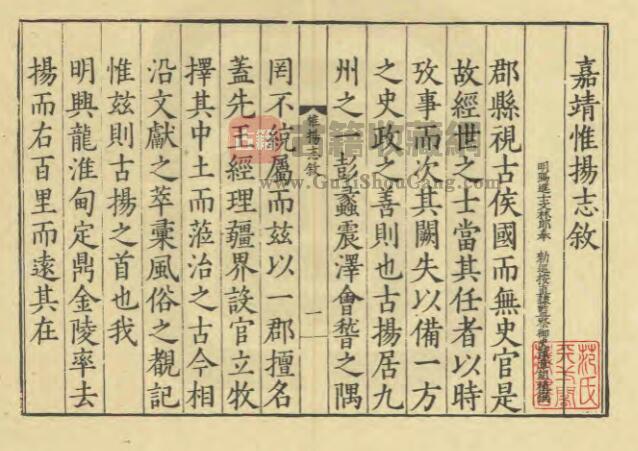 嘉靖惟揚志敘
郡縣視古侯國而無史官是
故經世之士當其任者以時
攷事而次其闕失以備一方
之史政之善則也古揚居九
州之一彭蠡震澤會嵇之隅
惟揚志敘
一
罔不統屬而兹以一郡擅名
蓋先王經理疆界設官立牧
擇其中土而涖治之古今相
沿文獻之萃稟風俗之覩記
惟兹則古揚之首也我
明興龍淮甸定鼎金陵率去
揚而右百里而遠其在
古籍收藏網
www.GuJiShouCang.com
范氏天一閣